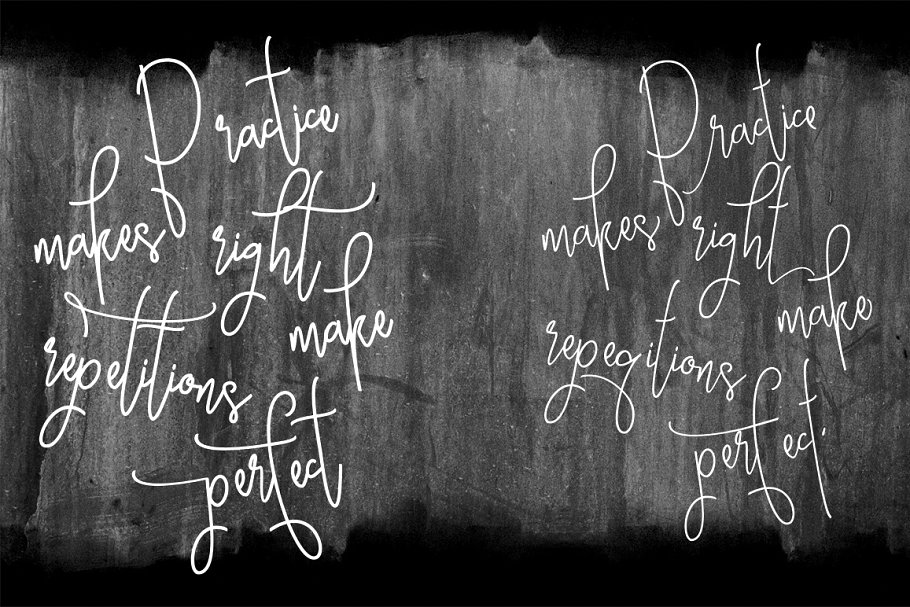 Practice
makes right
repetitions make
perfect
Practice
makes right
make
perfect